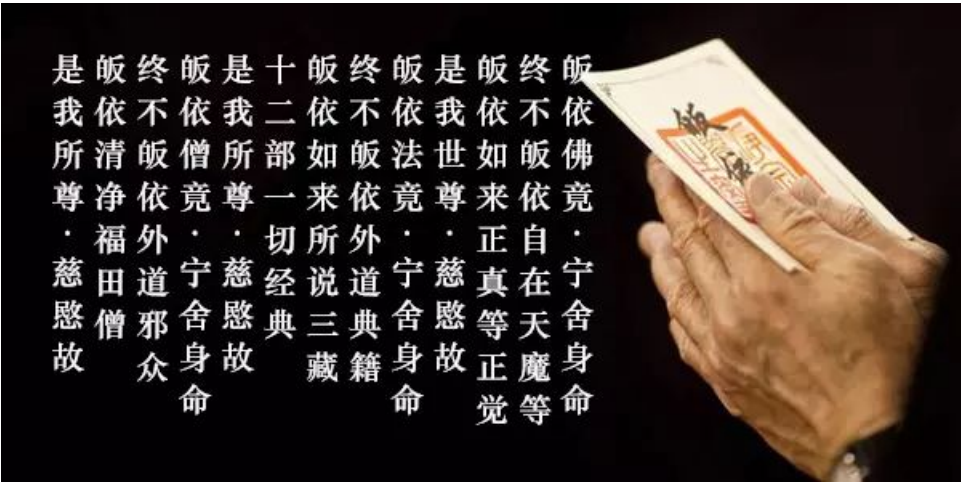 皈依佛竟·宁舍身命
终不皈依自在天魔等
皈依如来正真等正觉
是我世尊·慈愍故
皈依法竟·宁舍身命
终不皈依外道典籍
皈依如来所说三藏
十二部一切经典
是我所尊·慈愍故
皈依僧竟·宁舍身命
终不皈依外道邪众
皈依清净福田僧
是我所尊·慈愍故
皈依